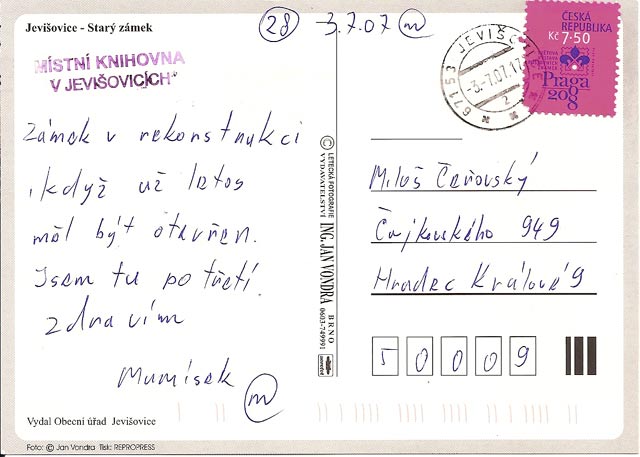 Jevišovice - Starý zámek
28 3.7.07 m
MÍSTNÍ KNIHOVNA
V JEVIŠOVICÍCH
Zámek v rekonstrukci
, když už letos
měl být otevřen.
Jsem tu po třetí.
Zdravím
Mumísek
m
Vydal Obecní úřad Jevišovice
Foto: © Jan Vondra Tisk: REPROPRESS
© LETECKÁ FOTOGRAFIE
VYDAVATELSTVÍ ING. JAN VONDRA BRNO
0603-749991
671 53 JEVIŠOVICE
-3.-7.07.17
2
ČESKÁ
REPUBLIKA
Kč 7·50
Praga
2008
Miloš Čeřovský
Čajkovského 949
Hradec Králové 9
5 0 0 0 9